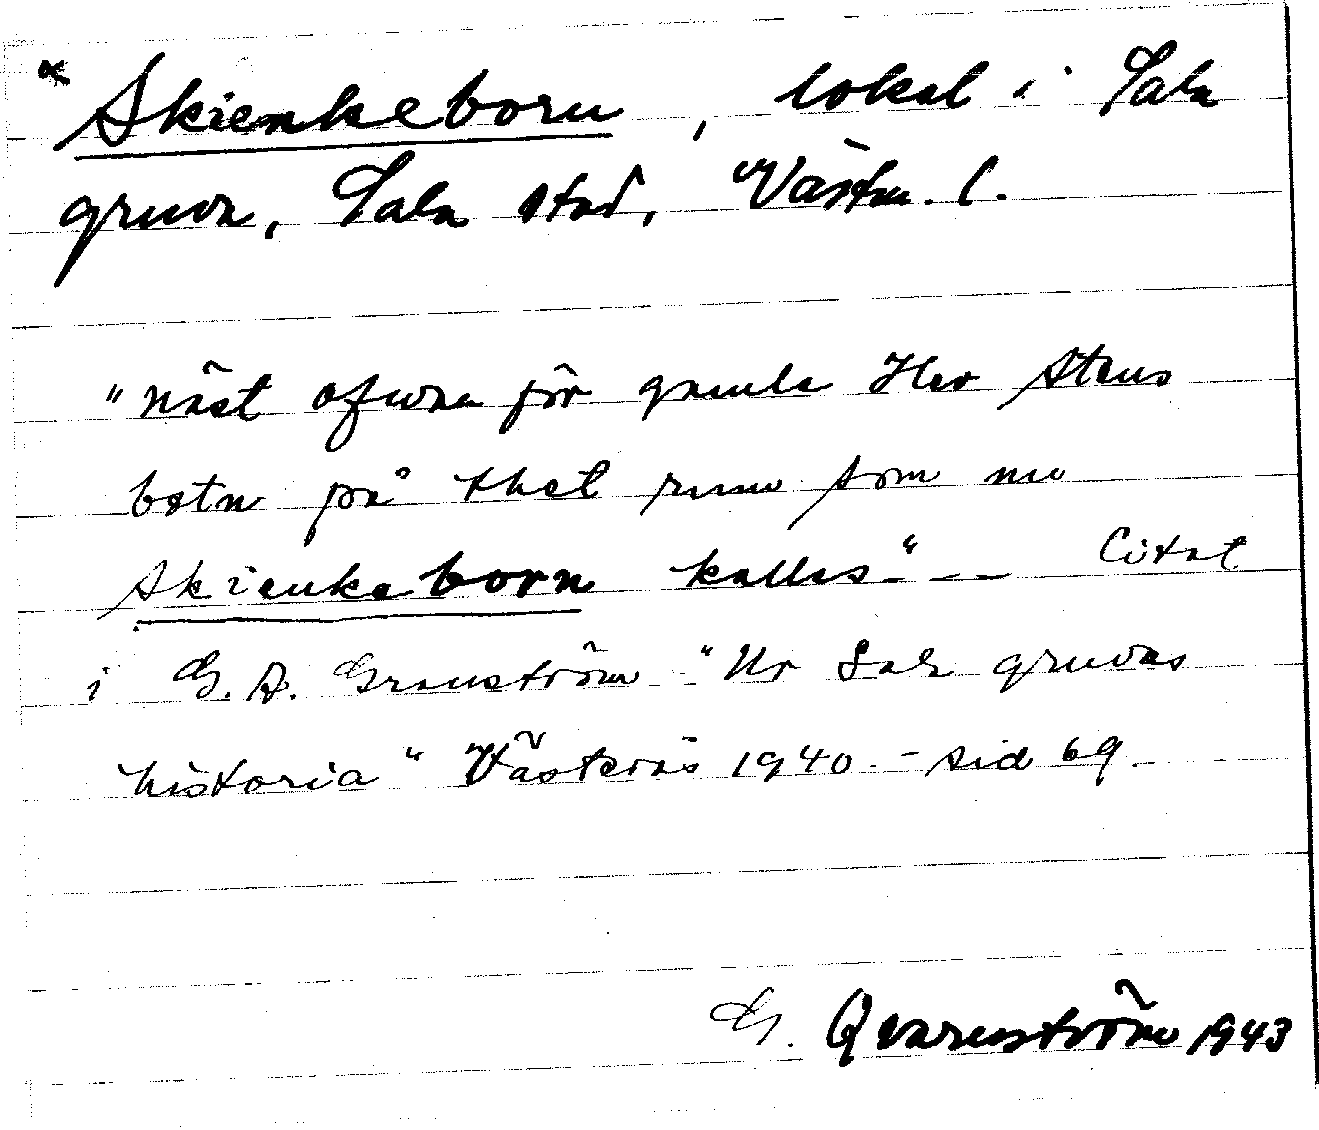 * Skienkeborn, lokal i Sala
gruva, Sala stad, Västm. l.
"näst ofwan för gamla Her Stens
botn på thet rum som nu
Skienkeborn kallas" - Citat
i G. A. Granström "Ur Sala gruvas
historia" Västerås 1940. - sid 69.
G. Qvarnström 1943